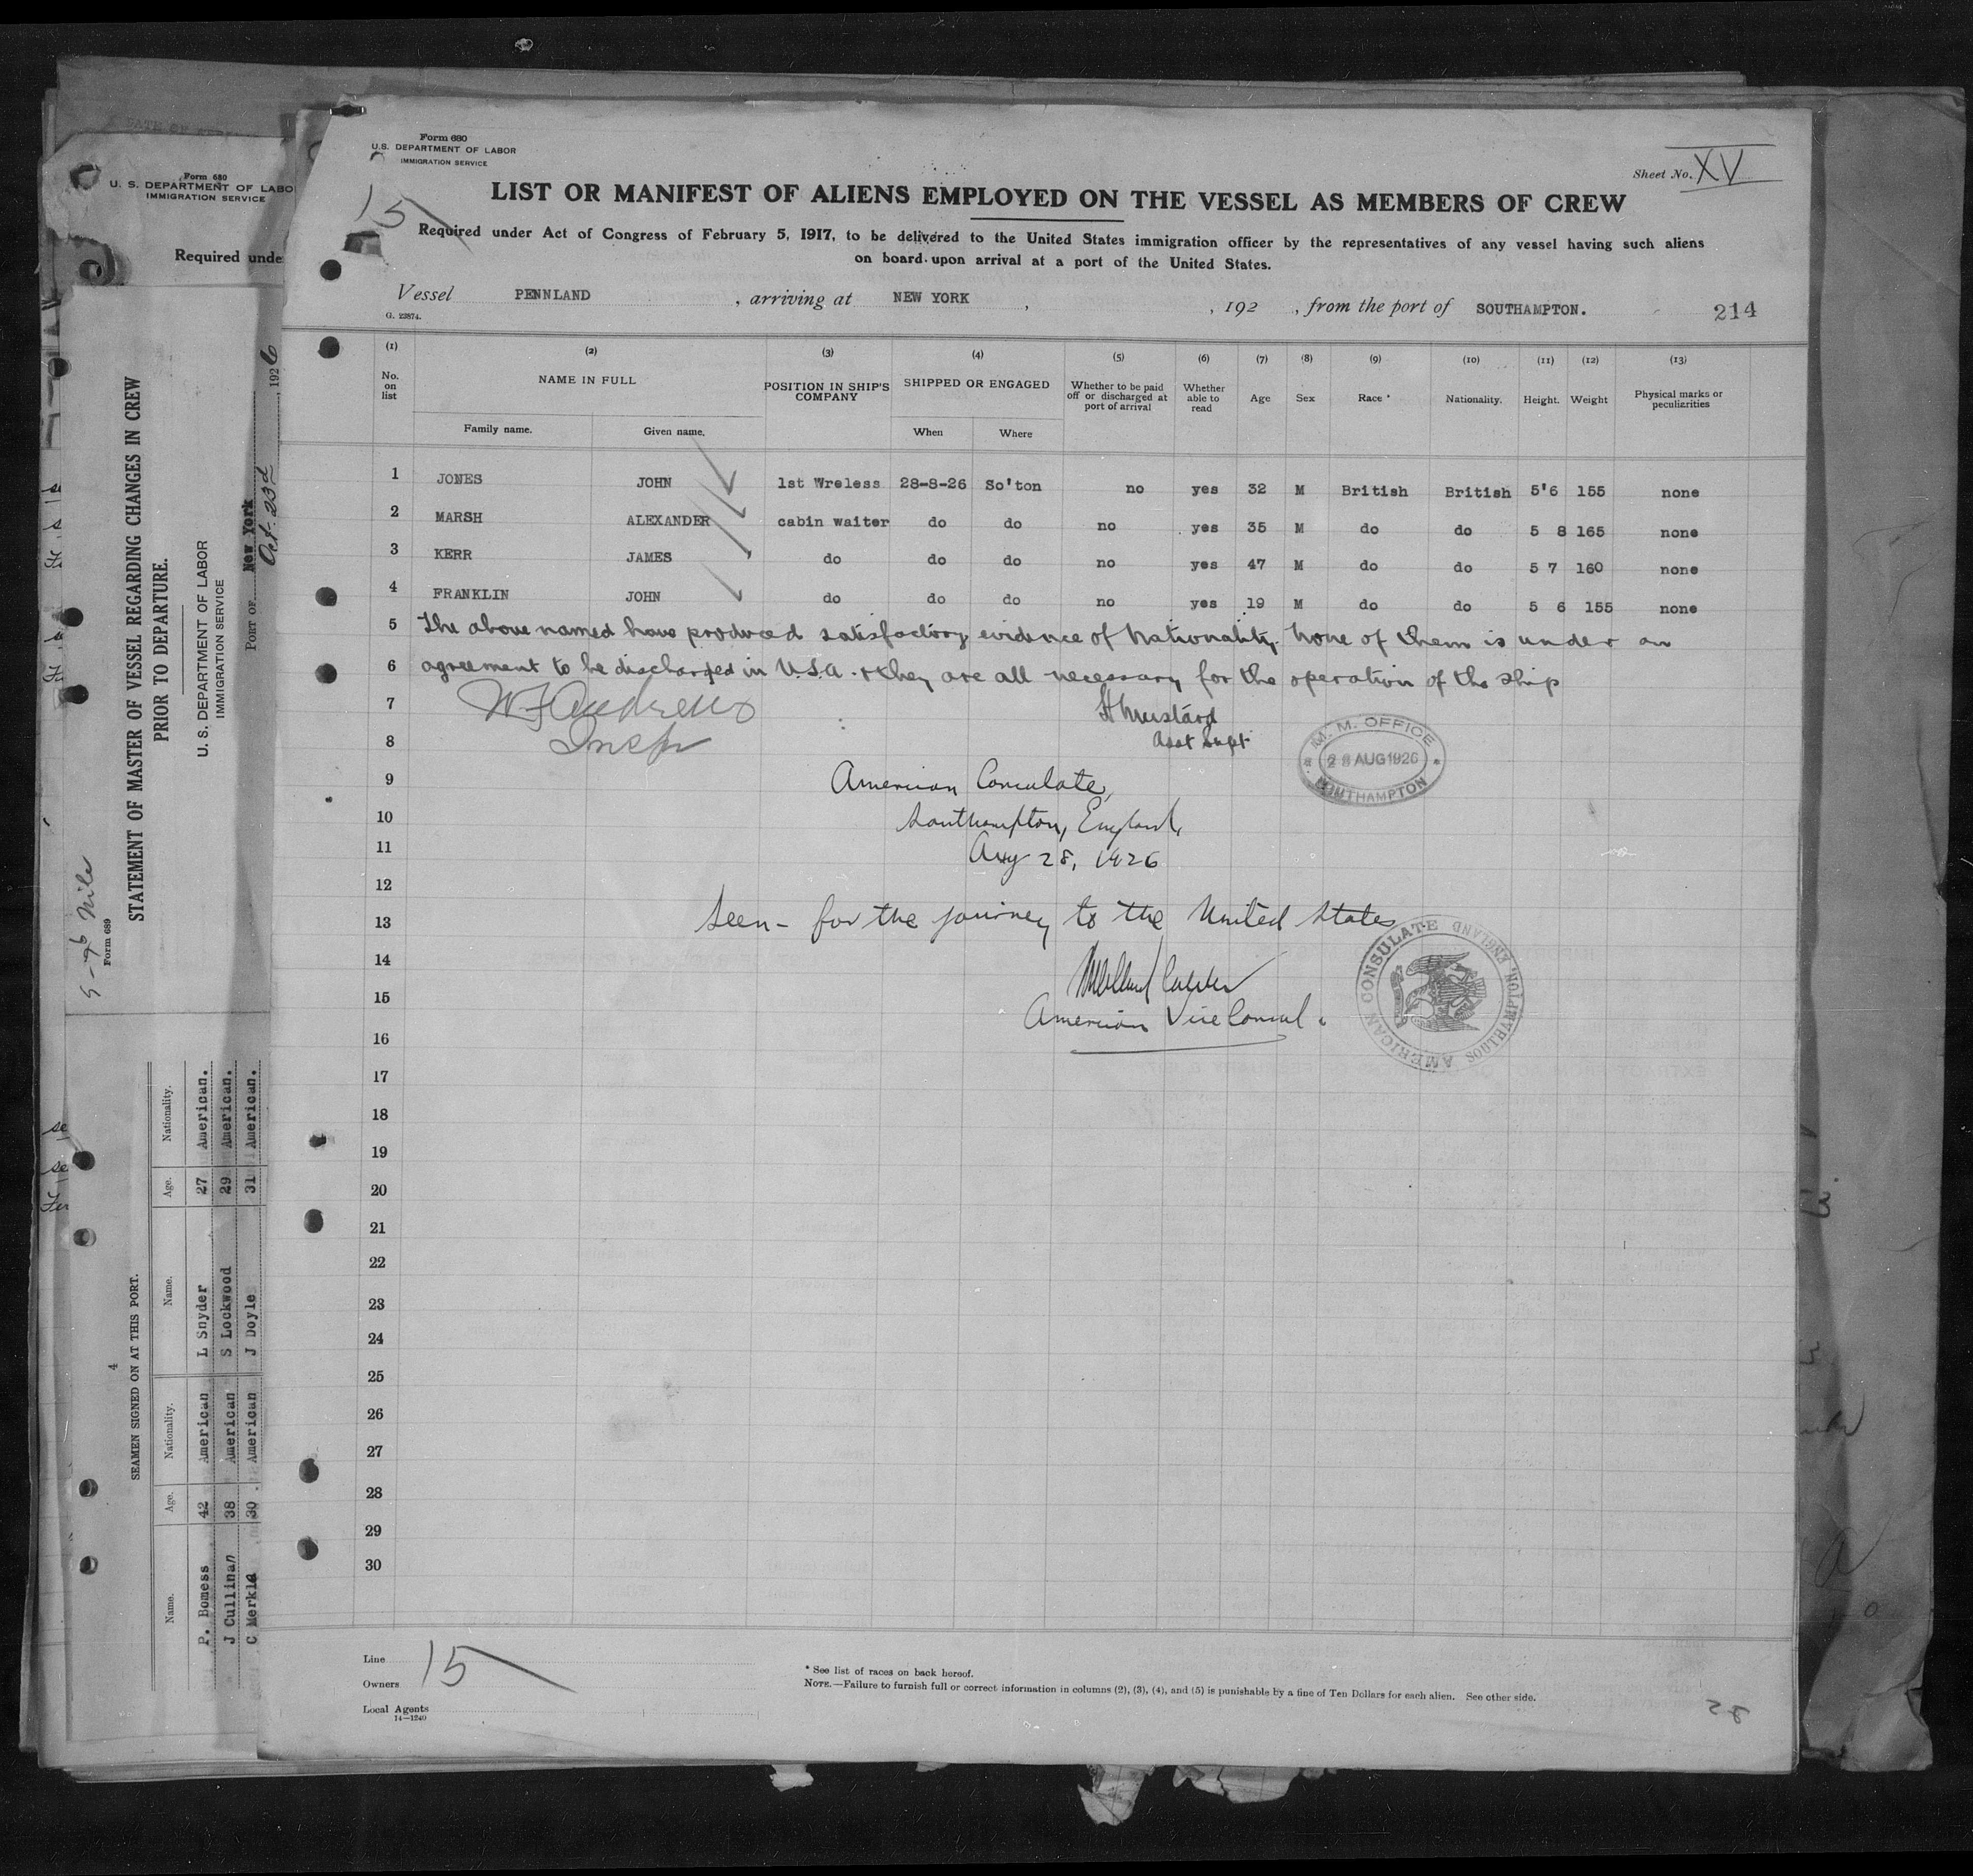 Form 680
U.S. DEPARTMENT OF LABOR
IMMIGRATION SERVICE
Sheet No. XV
15
LIST OR MANIFEST OF ALIENS EMPLOYED ON THE VESSEL AS MEMBERS OF CREW
Required under Act of Congress of February 5, 1917, to be delivered to the United States immigration officer by the representatives of any vessel having such aliens
on board upon arrival at a port of the United States.
Vessel PENNLAND, arriving at NEW YORK, , 192 , from the port of SOUTHAMPTON. 214
G. 23874.
(1) (2) (3) (4) (5) (6) (7) (8) (9) (10) (11) (12) (13)
No. on list NAME IN FULL POSITION IN SHIP'S COMPANY SHIPPED OR ENGAGED Whether to be paid off or discharged at port of arrival Whether able to read Age Sex Race * Nationality. Height. Weight Physical marks or peculiarities
Family name. Given name. When Where
1 JONES JOHN 1st Wreless 28-8-26 So'ton no yes 32 M British British 5'6 155 none
2 MARSH ALEXANDER cabin waiter do do no yes 35 M do do 5 8 165 none
3 KERR JAMES do do do no yes 47 M do do 5 7 160 none
4 FRANKLIN JOHN do do do no yes 19 M do do 5 6 155 none
5 The above named have produced satisfactory evidence of nationality. None of them is under an
6 agreement to be discharged in U.S.A. & they are all necessary for the operation of the ship
7 W F Andrews H Mustard
8 Insp Asst Supt
M.M. OFFICE
28 AUG 1926
SOUTHAMPTON
9 American Consulate,
10 Southampton, England,
11 Aug 28, 1926
12
13 Seen - for the journey to the United States
14
15 American Vice Consul.
AMERICAN CONSULATE SOUTHAMPTON, ENGLAND
AMERICAN
16
17
18
19
20
21
22
23
24
25
26
27
28
29
30
Line
Owners 15
Local Agents
14—1240
* See list of races on back hereof.
NOTE.—Failure to furnish full or correct information in columns (2), (3), (4), and (5) is punishable by a fine of Ten Dollars for each alien. See other side.
28
Form 680
U. S. DEPARTMENT OF LABO
IMMIGRATION SERVICE
Required unde
Form 689
STATEMENT OF MASTER OF VESSEL REGARDING CHANGES IN CREW
PRIOR TO DEPARTURE.
U. S. DEPARTMENT OF LABOR
IMMIGRATION SERVICE
PORT OF New York
Oct. 23d, 1926
4
SEAMEN SIGNED ON AT THIS PORT.
Name. Age. Nationality. Name. Age. Nationality.
P. Bomess 42 American L Snyder 27 American.
J Cullinan 38 American S Lockwood 29 American.
C Merkle 30 American J Doyle 31 American.